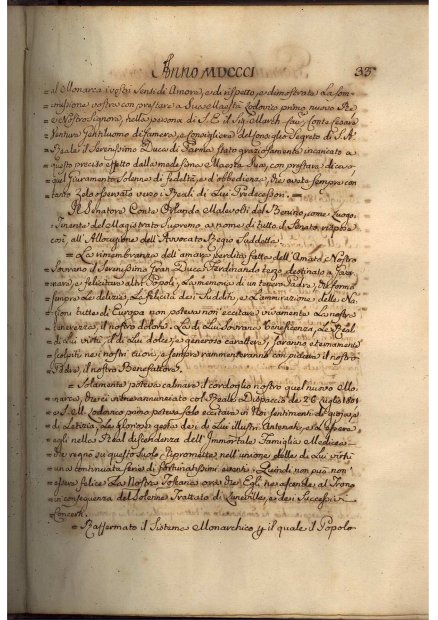 Anno MDCCCI 33
= al Monarca i vostri Sensi di Amore, e di rispetto, e dimostrate La som=
= missione vostra con prestare a Sua Maestà Lodovico primo nuovo Re
= e Nostro Signore, nella persona di S. E. il Sig. March. Cav. Conte Cesare
= Ventura Gentiluomo di Camera, e Consigliere del Consiglio Segreto di S. A.
= Reale il Serenissimo Duca di Parma stato graziosamente incaricato a
= questo preciso effetto dalla medesima Maestà Sua, con prestare dico, a
= quel giuramento solenne di fedeltà, e d'obbedienza, che avete sempre con
= tanto zelo osservato verso i Reali di Lui Predecessori. =
Il Senatore Conte Orlando Malevolti del Benino, come Luogo=
Tenente del Magistrato Supremo a nome di tutto il Senato, rispose
così, all'Allocuzione dell'Avvocato Regio Suddetto
= La rimembranza dell'amara perdita fatta dell'Amato Nostro
Sovrano il Serenissimo Gran Duca Ferdinando terzo destinato a for=
mare, e felicitare altri Popoli, La memoria di un tenero Padre, che formò
sempre Le delizie, La felicità dei Sudditi, e L'ammirazione delle Na=
zioni tutte di Europa non poteva non eccitare vivamente La nostra
tenerezza, il nostro dolore. La di Lui Sovrana beneficenza, Le Reali
di Lui virtù, il di Lui dolce, e generoso carattere, saranno eternamente
scolpiti nei nostri cuori, e sempre rammenteranno con piacere il nostro
Padre, il nostro Benefattore.
= Solamente poteva calmare il cordoglio nostro quel nuovo Mo=
narca, che ci venne annunciato col Reale Dispaccio de 26 Luglio 1801
e S. M. Lodovico primo poteva solo eccitare in Noi sentimenti di gioja, e
di Letizia. Le gloriose gesta dei di Lui illustri Antenati, e La Sua
egli nella Real discendenza dell'Immortale Famiglia Medicea
che regnò su questo Suolo, ci promette nell'unione delle di Lui virtù
una continuata serie di fortunatissimi eventi. Quindi non può non
essere felice La Nostra Toscana ora che Egli ne ascende al Trono
in conseguenza del Solenne Trattato di Luneville, e dei Successivi
Concerti.
= Raffermato il Sistema Monarchico per il quale il Popolo